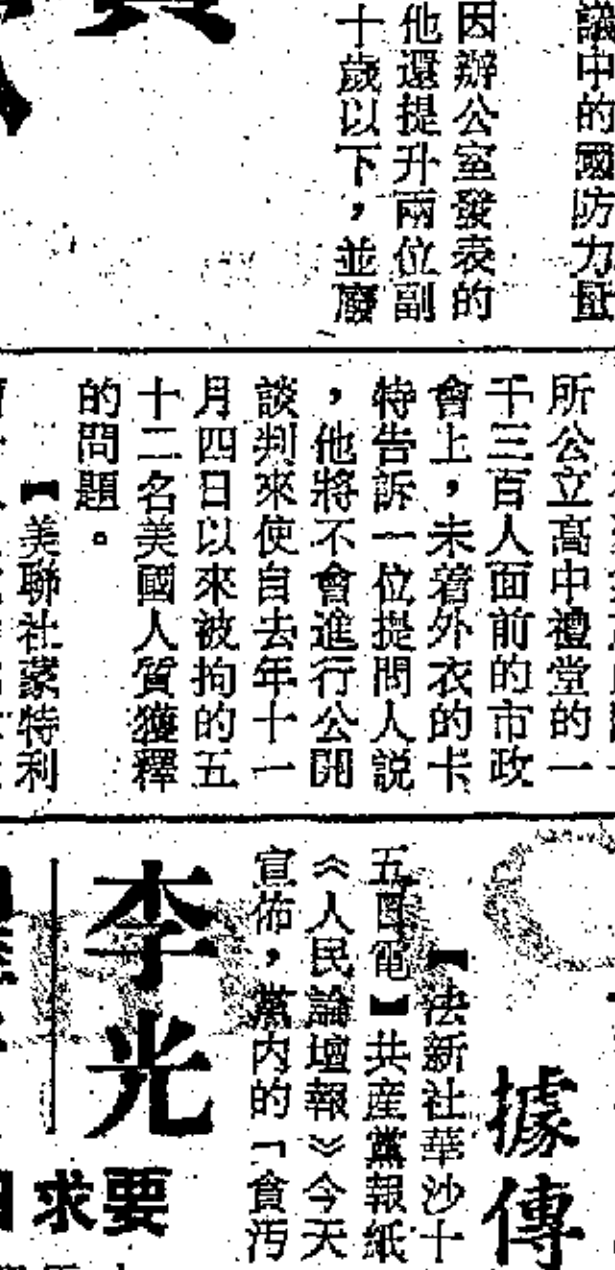 議中的國防力量
因辦公室發表的
他還提升兩位副
十歲以下，並廢
所公立高中禮堂的一
千三百人面前的市政
會上，未着外衣的卡
特告訴一位提問人説
，他將不會進行公開
談判來使自去年十一
月四日以來被拘的五
十二名美國人質獲釋
的問題。
【美聯社蒙特利
據傳
【法新社華沙十
五日電】共産黨報紙
《人民論壇報》今天
宣佈，黨内的「貪污
李光
要求